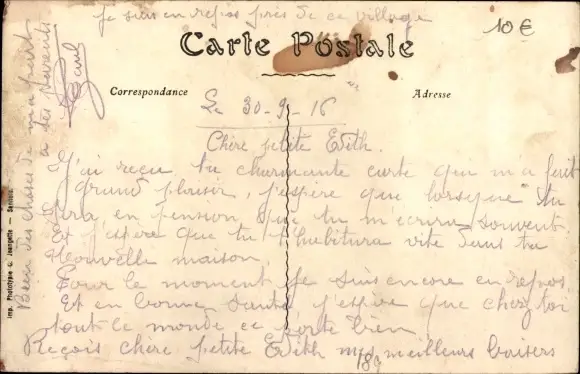 Je suis en repos près de ce village
10 €
Carte Postale
Correspondance
Adresse
Le 30-9-16
Chère petite Edith.
J'ai reçu ta charmante carte qui m'a fait
grand plaisir, j'espère que lorsque tu
sera en pension, que tu m'ecrira souvent
Et j'espère que tu t'habitura vite dans ta
Nouvelle maison.
Pour le moment je suis encore en repos
Et en bonne santé j'espère que chez toi
tout le monde ce porte bien
Reçois chère petite Edith mes meilleurs baisers
189
Bien des choses de ma part
a tes parents
Paul
Imp. Phototypie G. Jeangette — Senlis